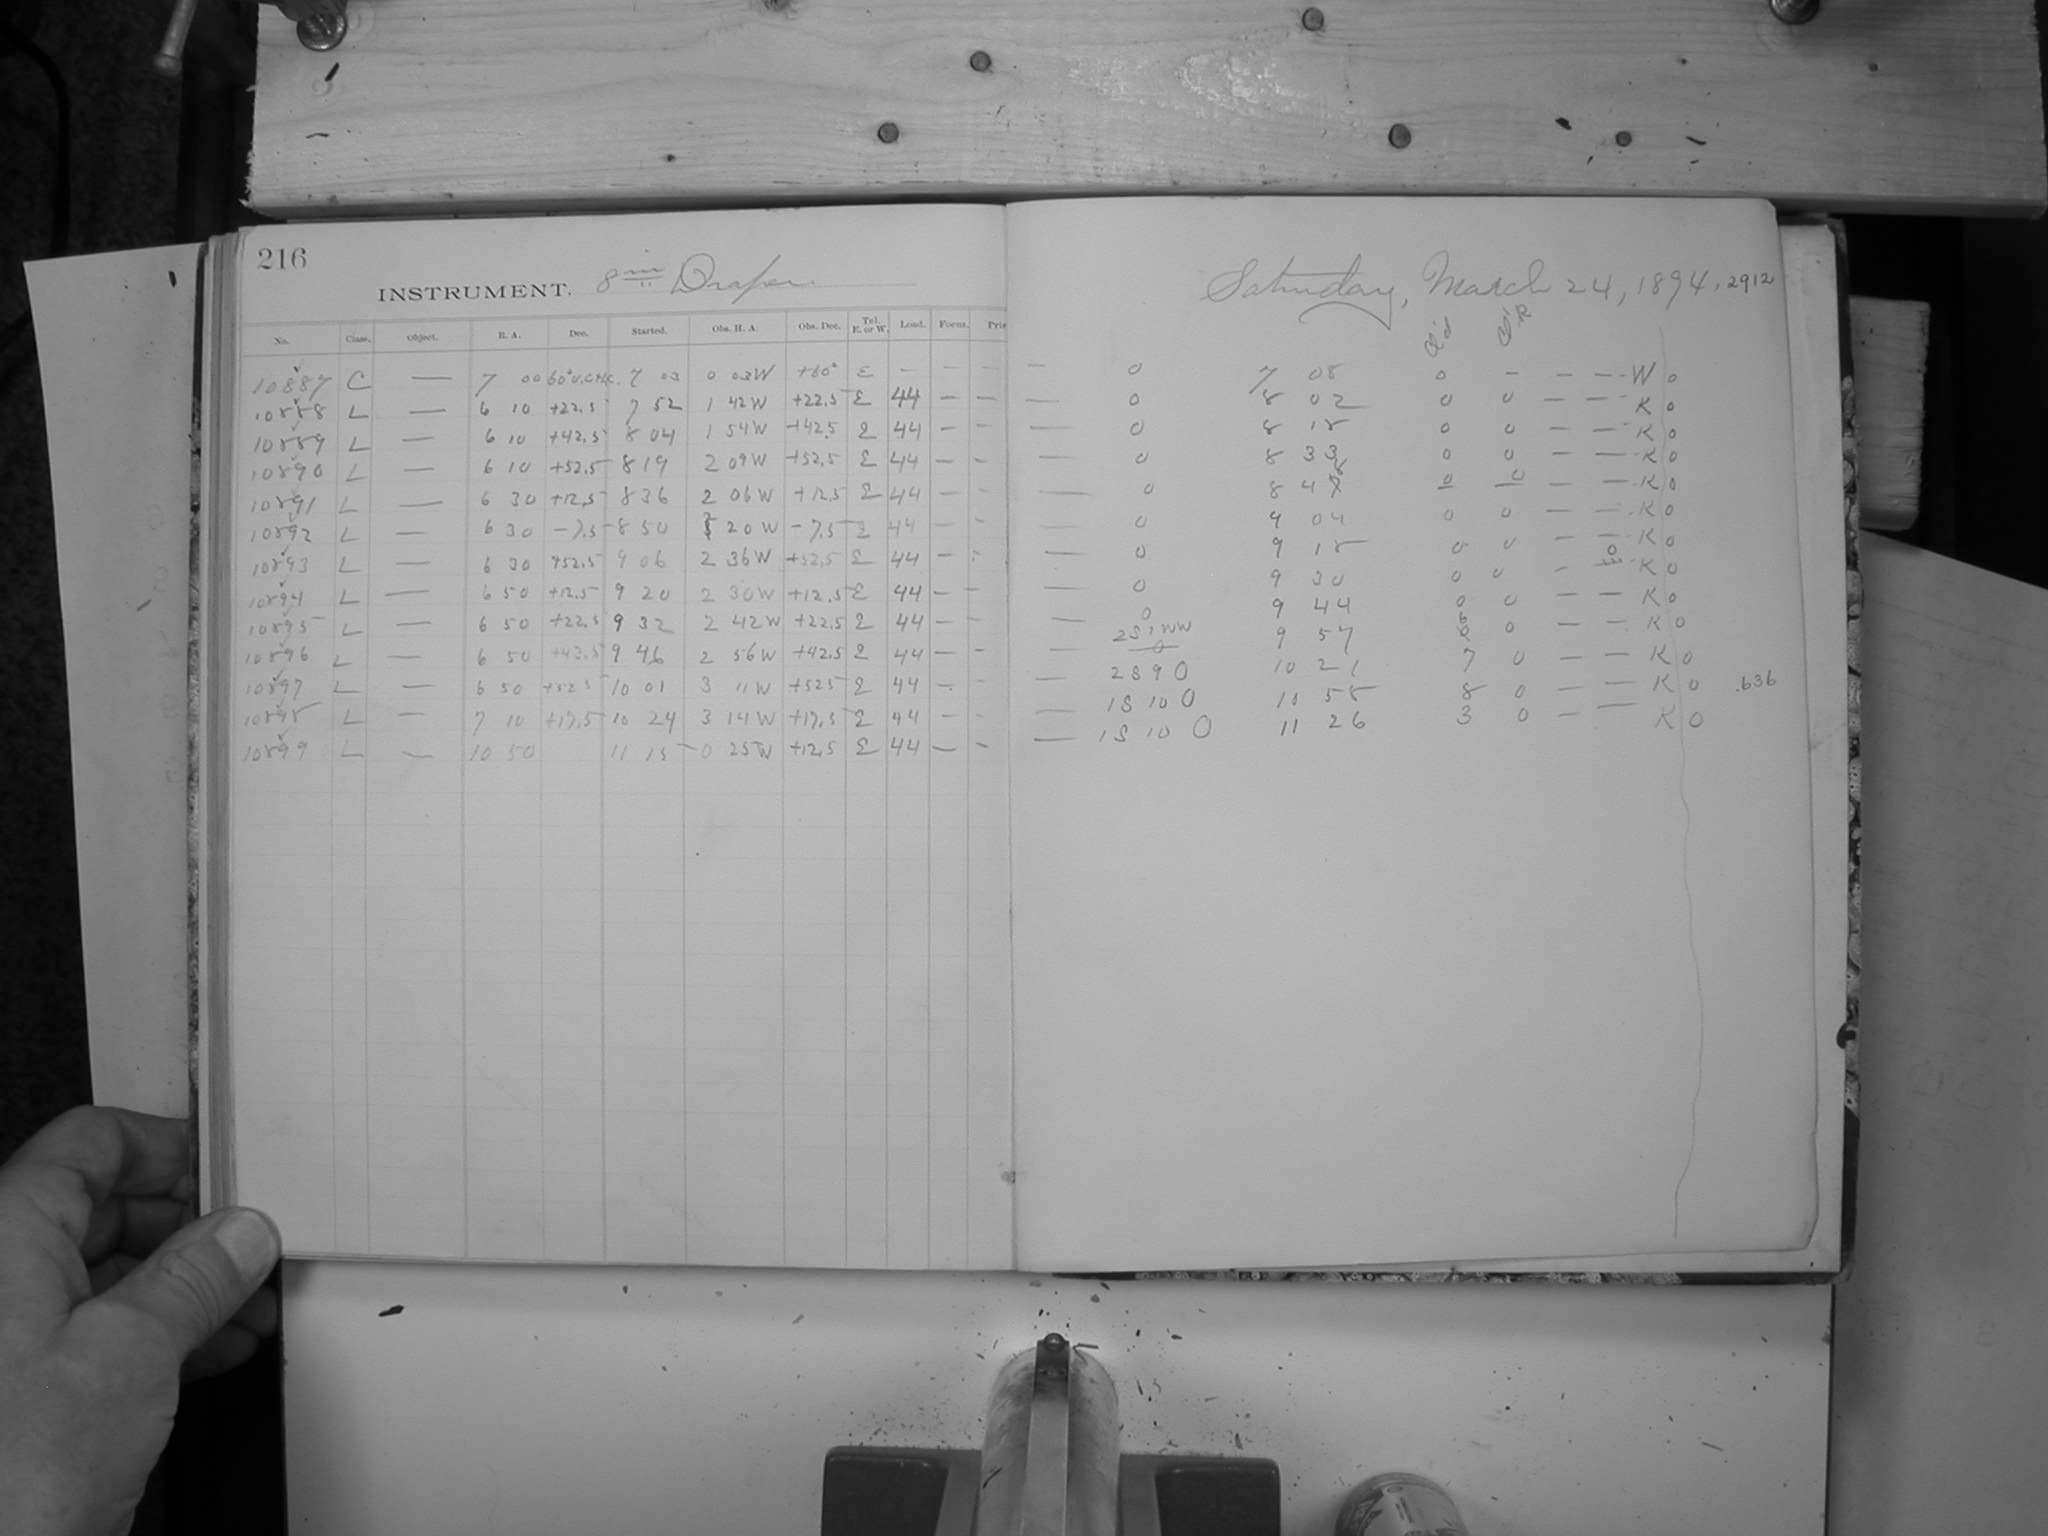 216
INSTRUMENT. 8 in Draper
Saturday, March 24, 1894. 2912
No. Class. Object. R. A. Dec. Started. Obs. H. A. Obs. Dec. Tel. E. or W. Load. Focus. Pris
10887 C — 7 00 7 03 0 03W +60° E — — — — 0 7 08 0 — — — W 0
10888 L — 6 10 +22.5 7 52 1 42W +22.5 E 44 — — — 0 8 02 0 0 — — K 0
10889 L — 6 10 +42.5 8 04 1 54W +42.5 E 44 — — — 0 8 18 0 0 — — K 0
10890 L — 6 10 +52.5 8 19 2 09W +52.5 E 44 — — — 0 8 33 0 0 — — K 0
10891 L — 6 30 +12.5 8 36 2 06W +12.5 E 44 — — — 0 8 48 0 0 — — K 0
10892 L — 6 30 -7.5 8 50 2 20W -7.5 E 44 — — — 0 9 04 0 0 — — K 0
10893 L — 6 30 +52.5 9 06 2 36W +52.5 E 44 — — — 0 9 18 0 0 — — K 0
10894 L — 6 50 +12.5 9 20 2 30W +12.5 E 44 — — — 0 9 30 0 0 — K 0
10895 L — 6 50 +22.5 9 32 2 42W +22.5 E 44 — — — 0 9 44 0 0 — — K 0
10896 L — 6 50 +42.5 9 46 2 56W +42.5 E 44 — — — 9 57 0 — — K 0
10897 L — 6 50 +52.5 10 01 3 11W +52.5 E 44 — — — 2S 9 0 10 21 7 0 — — K 0
10898 L — 7 10 +17.5 10 24 3 14W +17.5 E 44 — — — 1S 10 0 10 58 8 0 — — K 0 .636
10899 L — 10 50 11 15 0 25W +12.5 E 44 — — — 1S 10 0 11 26 3 0 — — K 0